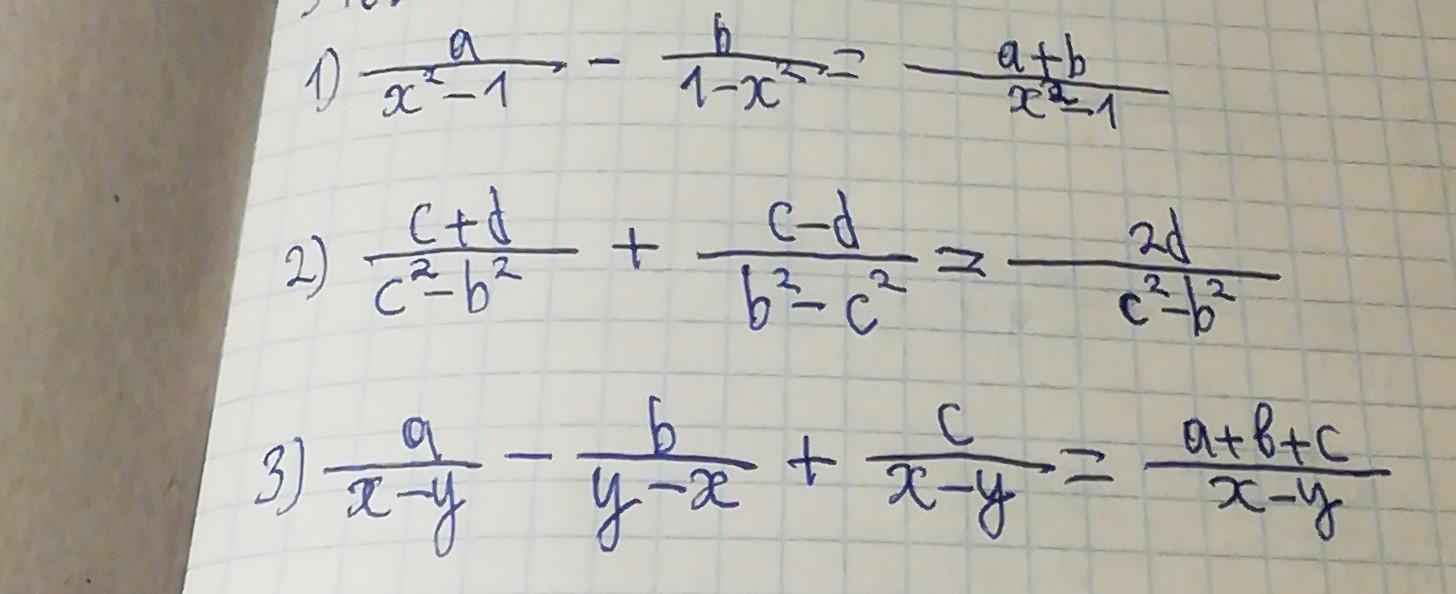 1) a/(x²-1) - b/(1-x²) = (a+b)/(x²-1)
2) (c+d)/(c²-b²) + (c-d)/(b²-c²) = 2d/(c²-b²)
3) a/(x-y) - b/(y-x) + c/(x-y) = (a+b+c)/(x-y)